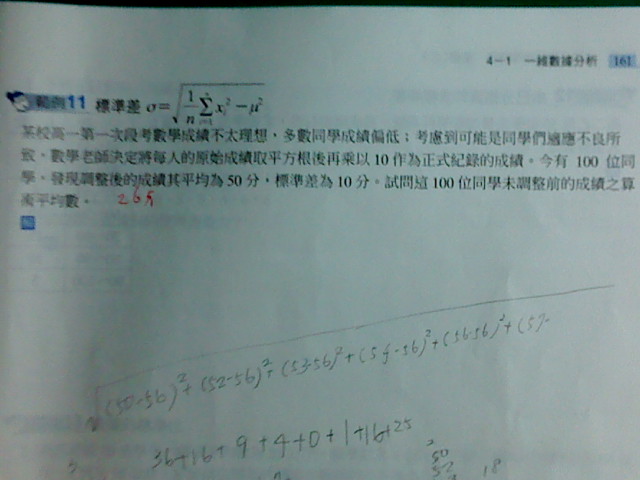 4-1 一維數據分析 161
範例11 標準差 σ=√(1/n ∑ xᵢ² − μ²)
某校高一第一次段考數學成績不太理想,多數同學成績偏低;考慮到可能是同學們適應不良所
致,數學老師決定將每人的原始成績取平方根後再乘以10作為正式紀錄的成績。今有100位同
學,發現調整後的成績其平均為50分,標準差為10分。試問這100位同學未調整前的成績之算
術平均數。 26分
解
√(50-56)²+(52-56)²+(53-56)²+(54-56)²+(56-56)²+(57-
36+16+9+4+0+1+16+25
50
52 18